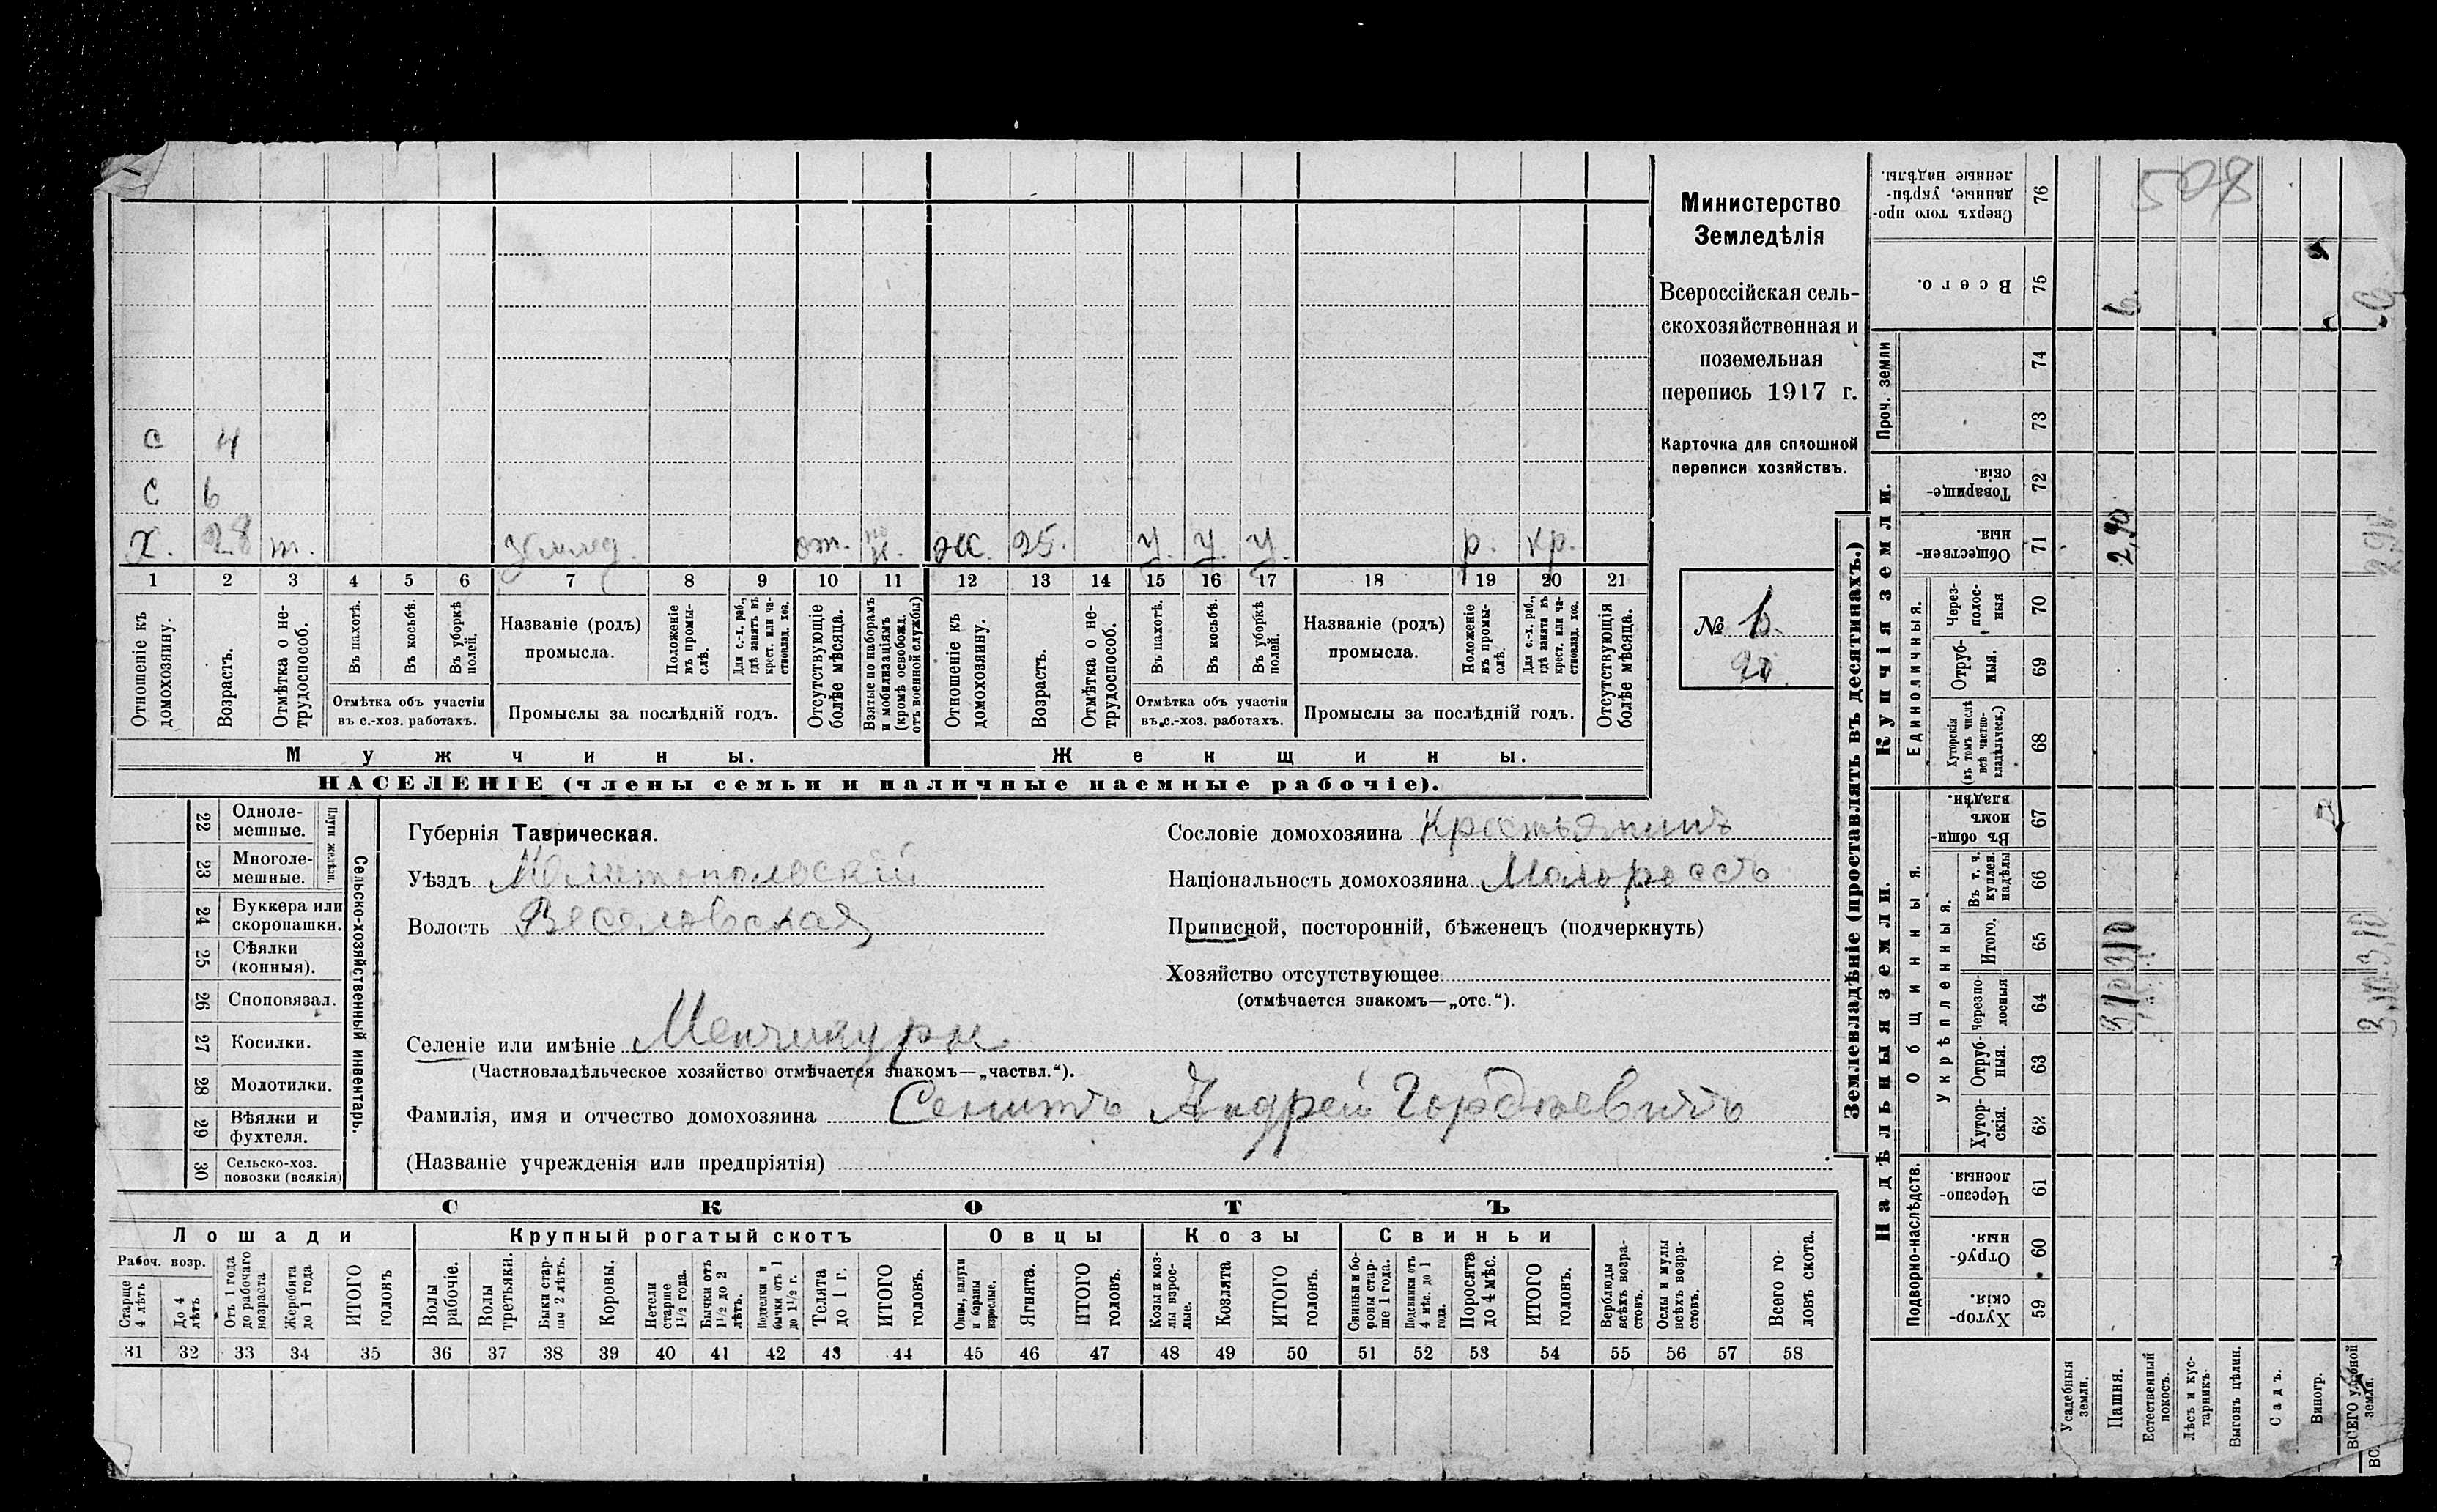 508
Министерство
Земледѣлія
Всероссійская сель-
скохозяйственная и
поземельная
перепись 1917 г.
Карточка для сплошной
переписи хозяйствъ.
№ 6.
с 4
с 6
Х. 28 т. Землед. от. ж. 25. у. у. у. р. кр.
1 2 3 4 5 6 7 8 9 10 11 12 13 14 15 16 17 18 19 20 21
Отношеніе къ домохозяину.
Возрастъ.
Отмѣтка о не-трудоспособ.
Въ пахотѣ.
Въ косьбѣ.
Въ уборкѣ полей.
Отмѣтка объ участіи
въ с.-хоз. работахъ.
Названіе (родъ)
промысла.
Положеніе въ промы-слѣ.
Для с.-х. раб., гдѣ занятъ въ крест. или ча-стновлад. хоз.
Промыслы за послѣдній годъ.
Отсутствующіе болѣе мѣсяца.
Взятые по наборамъ и мобилизаціямъ (кромѣ освобожд. отъ военной службы)
Отношеніе къ домохозяину.
Возрастъ.
Отмѣтка о не-трудоспособ.
Въ пахотѣ.
Въ косьбѣ.
Въ уборкѣ полей.
Отмѣтка объ участіи
въ с.-хоз. работахъ.
Названіе (родъ)
промысла.
Положеніе въ промы-слѣ.
Для с.-х. раб., гдѣ занята въ крест. или ча-стновлад. хоз.
Промыслы за послѣдній годъ.
Отсутствующія болѣе мѣсяца.
Мужчины.
Женщины.
НАСЕЛЕНІЕ (члены семьи и наличные наемные рабочіе).
22 Одноле-мешные.
23 Многоле-мешные.
Плуги желѣзн.
24 Буккера или скоропашки.
25 Сѣялки (конныя).
26 Сноповязал.
27 Косилки.
28 Молотилки.
29 Вѣялки и фухтеля.
30 Сельско-хоз. повозки (всякія)
Сельско-хозяйственный инвентарь.
Губернія Таврическая.
Уѣздъ Мелитопольскій
Волость Веселовская
Сословіе домохозяина Крестьянинъ
Національность домохозяина Малороссъ
Приписной, посторонній, бѣженецъ (подчеркнуть)
Хозяйство отсутствующее
(отмѣчается знакомъ—„отс.“).
Селеніе или имѣніе Менчикуры
(Частновладѣльческое хозяйство отмѣчается знакомъ—„частвл.“).
Фамилія, имя и отчество домохозяина Сенить Андрей Гордѣевичъ
(Названіе учрежденія или предпріятія)
СКОТЪ
Лошади
Крупный рогатый скотъ
Овцы
Козы
Свиньи
Рабоч. возр.
Старше 4 лѣтъ
До 4 лѣтъ
Отъ 1 года до рабочаго возраста
Жеребята до 1 года
ИТОГО головъ
Волы рабочіе.
Волы третьяки.
Быки стар-ше 2 лѣтъ.
Коровы.
Нетели старше 1½ года.
Бычки отъ 1½ до 2 лѣтъ.
Подтелки и бычки отъ 1 до 1½ г.
Телята до 1 г.
ИТОГО головъ.
Овцы, валухи и бараны взрослые.
Ягнята.
ИТОГО головъ.
Козы и коз-лы взрос-лые.
Козлята
ИТОГО головъ.
Свиньи и бо-ровы стар-ше 1 года.
Подсвинки отъ 4 мѣс. до 1 года.
Поросята до 4 мѣс.
ИТОГО головъ.
Верблюды всѣхъ возра-стовъ.
Ослы и мулы всѣхъ возра-стовъ.
Всего го-ловъ скота.
31 32 33 34 35 36 37 38 39 40 41 42 43 44 45 46 47 48 49 50 51 52 53 54 55 56 57 58
Землевладѣніе (проставлять въ десятинахъ.)
Надѣльныя земли.
Купчія земли.
Проч. земли
Подворно-наслѣдств.
Общинныя.
Укрѣпленныя.
Единоличныя.
Хутор-скія. 59
Отруб-ныя. 60
Черезпо-лосныя. 61
Хутор-скія. 62
Отруб-ныя. 63
Черезпо-лосныя 64
Итого. 65
Въ т. ч. куплен. надѣлы 66
Въ общи-номъ владѣн. 67
Хуторскія (въ томъ числѣ всѣ частно-владѣльческ.) 68
Отруб-ныя. 69
Через-полос-ныя 70
Обществен-ныя. 71
Товарище-скія. 72
73
74
Всего. 75
Сверхъ того про-данные, укрѣп-ленные надѣлы. 76
Усадебныя земли.
Пашня. 3,10 3,10 2,90 6.
Естественный покосъ.
Лѣсъ и кус-тарникъ.
Выгонъ цѣлин.
Садъ.
Виногр.
ВСЕГО удобной земли. 3,10 3,10 2,90. 6.